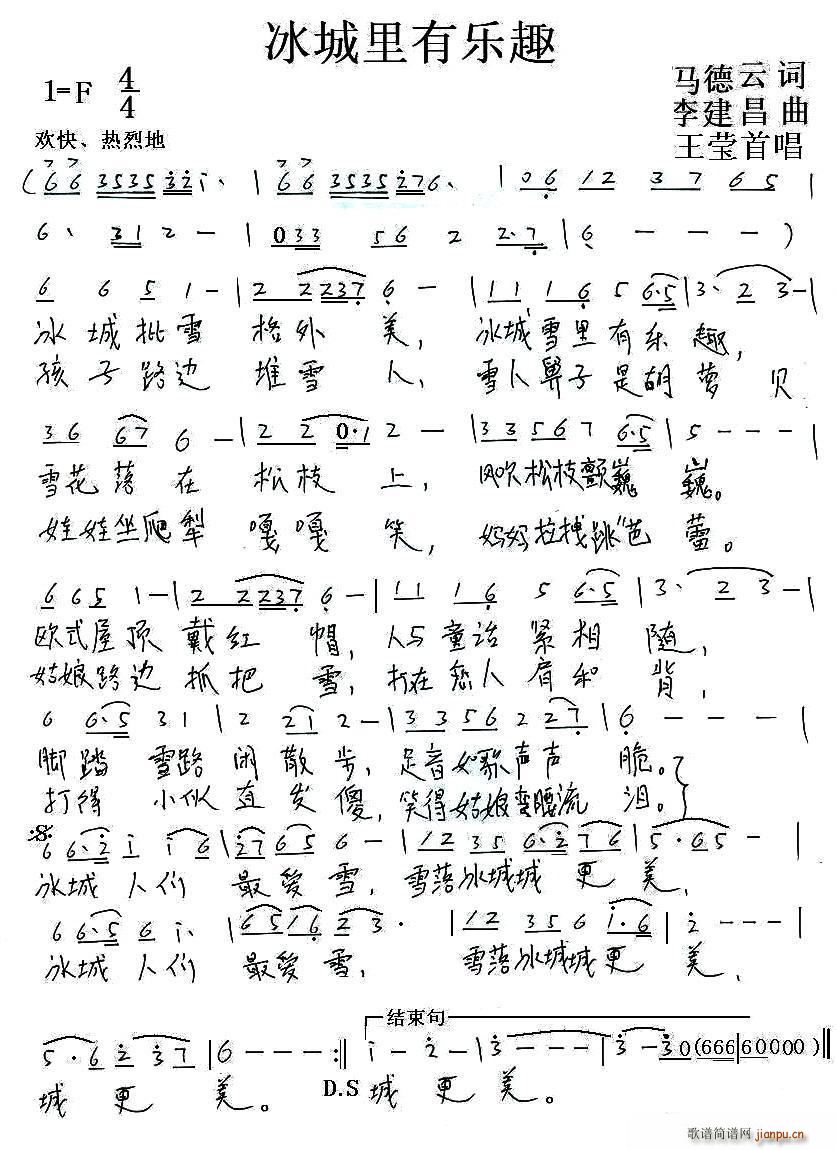 冰城里有乐趣
1=F 4/4
马德云 词
李建昌 曲
王莹首唱
欢快、热烈地
(66 3535 32i、 | 66 3535 276、 | 06 12 37 65 |
6、 312 - | 033 56 2 2·7 | 6 - - - )
6 65 1 - | 2 2237 6 - | 11 16 5 6·5 | 3、23 - |
冰城批雪格外美，冰城雪里有乐趣，
孩子路边堆雪人，雪人鼻子是胡萝贝
36 67 6 - | 2 20·1 2 - | 33567 6·5 | 5 - - - |
雪花落在松枝上，风吹松枝颤巍巍。
娃娃坐爬犁嘎嘎笑，妈妈拉拽跳"芭蕾。
6 65 1 - | 2 2237 6 - | 11 16 5 6·5 | 3、23 - |
欧式屋顶戴红帽，人与童话紧相随，
姑娘路边抓把雪，打在恋人肩和背，
6 6·5 31 | 2 2i 2 - | 33 56 2 27 | 6 - - - |
脚踏雪路闲散步，足音如歌声声脆。
打得小伙直发傻，笑得姑娘弯腰流泪。
6 6·2 i i6 | 27 65 6 - | 12 35 6·2 76 | 5·65 - |
冰城人们最爱雪，雪落冰城城更美，
6 6·5 6 i、 | 65 16 23· | 12 356 i·6 | 2 - - - |
冰城人们最爱雪，雪落冰城城更美，
结束句
5·6 2 37 | 6 - - - :‖ i - 2 - | 3 - - - | 3 - 30 (666 | 60000) ‖
城更美。
D.S
城更美。
歌谱简谱网
jianpu.cn